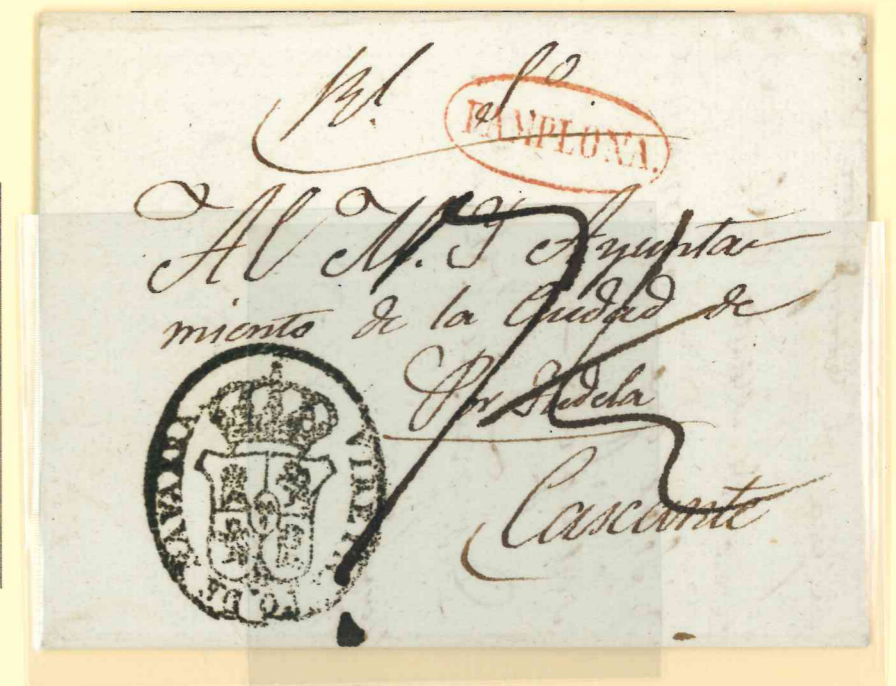 Rl. So.
PAMPLONA.
Al M. Y Ayunta
miento de la Ciudad de
Por Tudela
Cascante
VIREYNATO DE NAVARRA